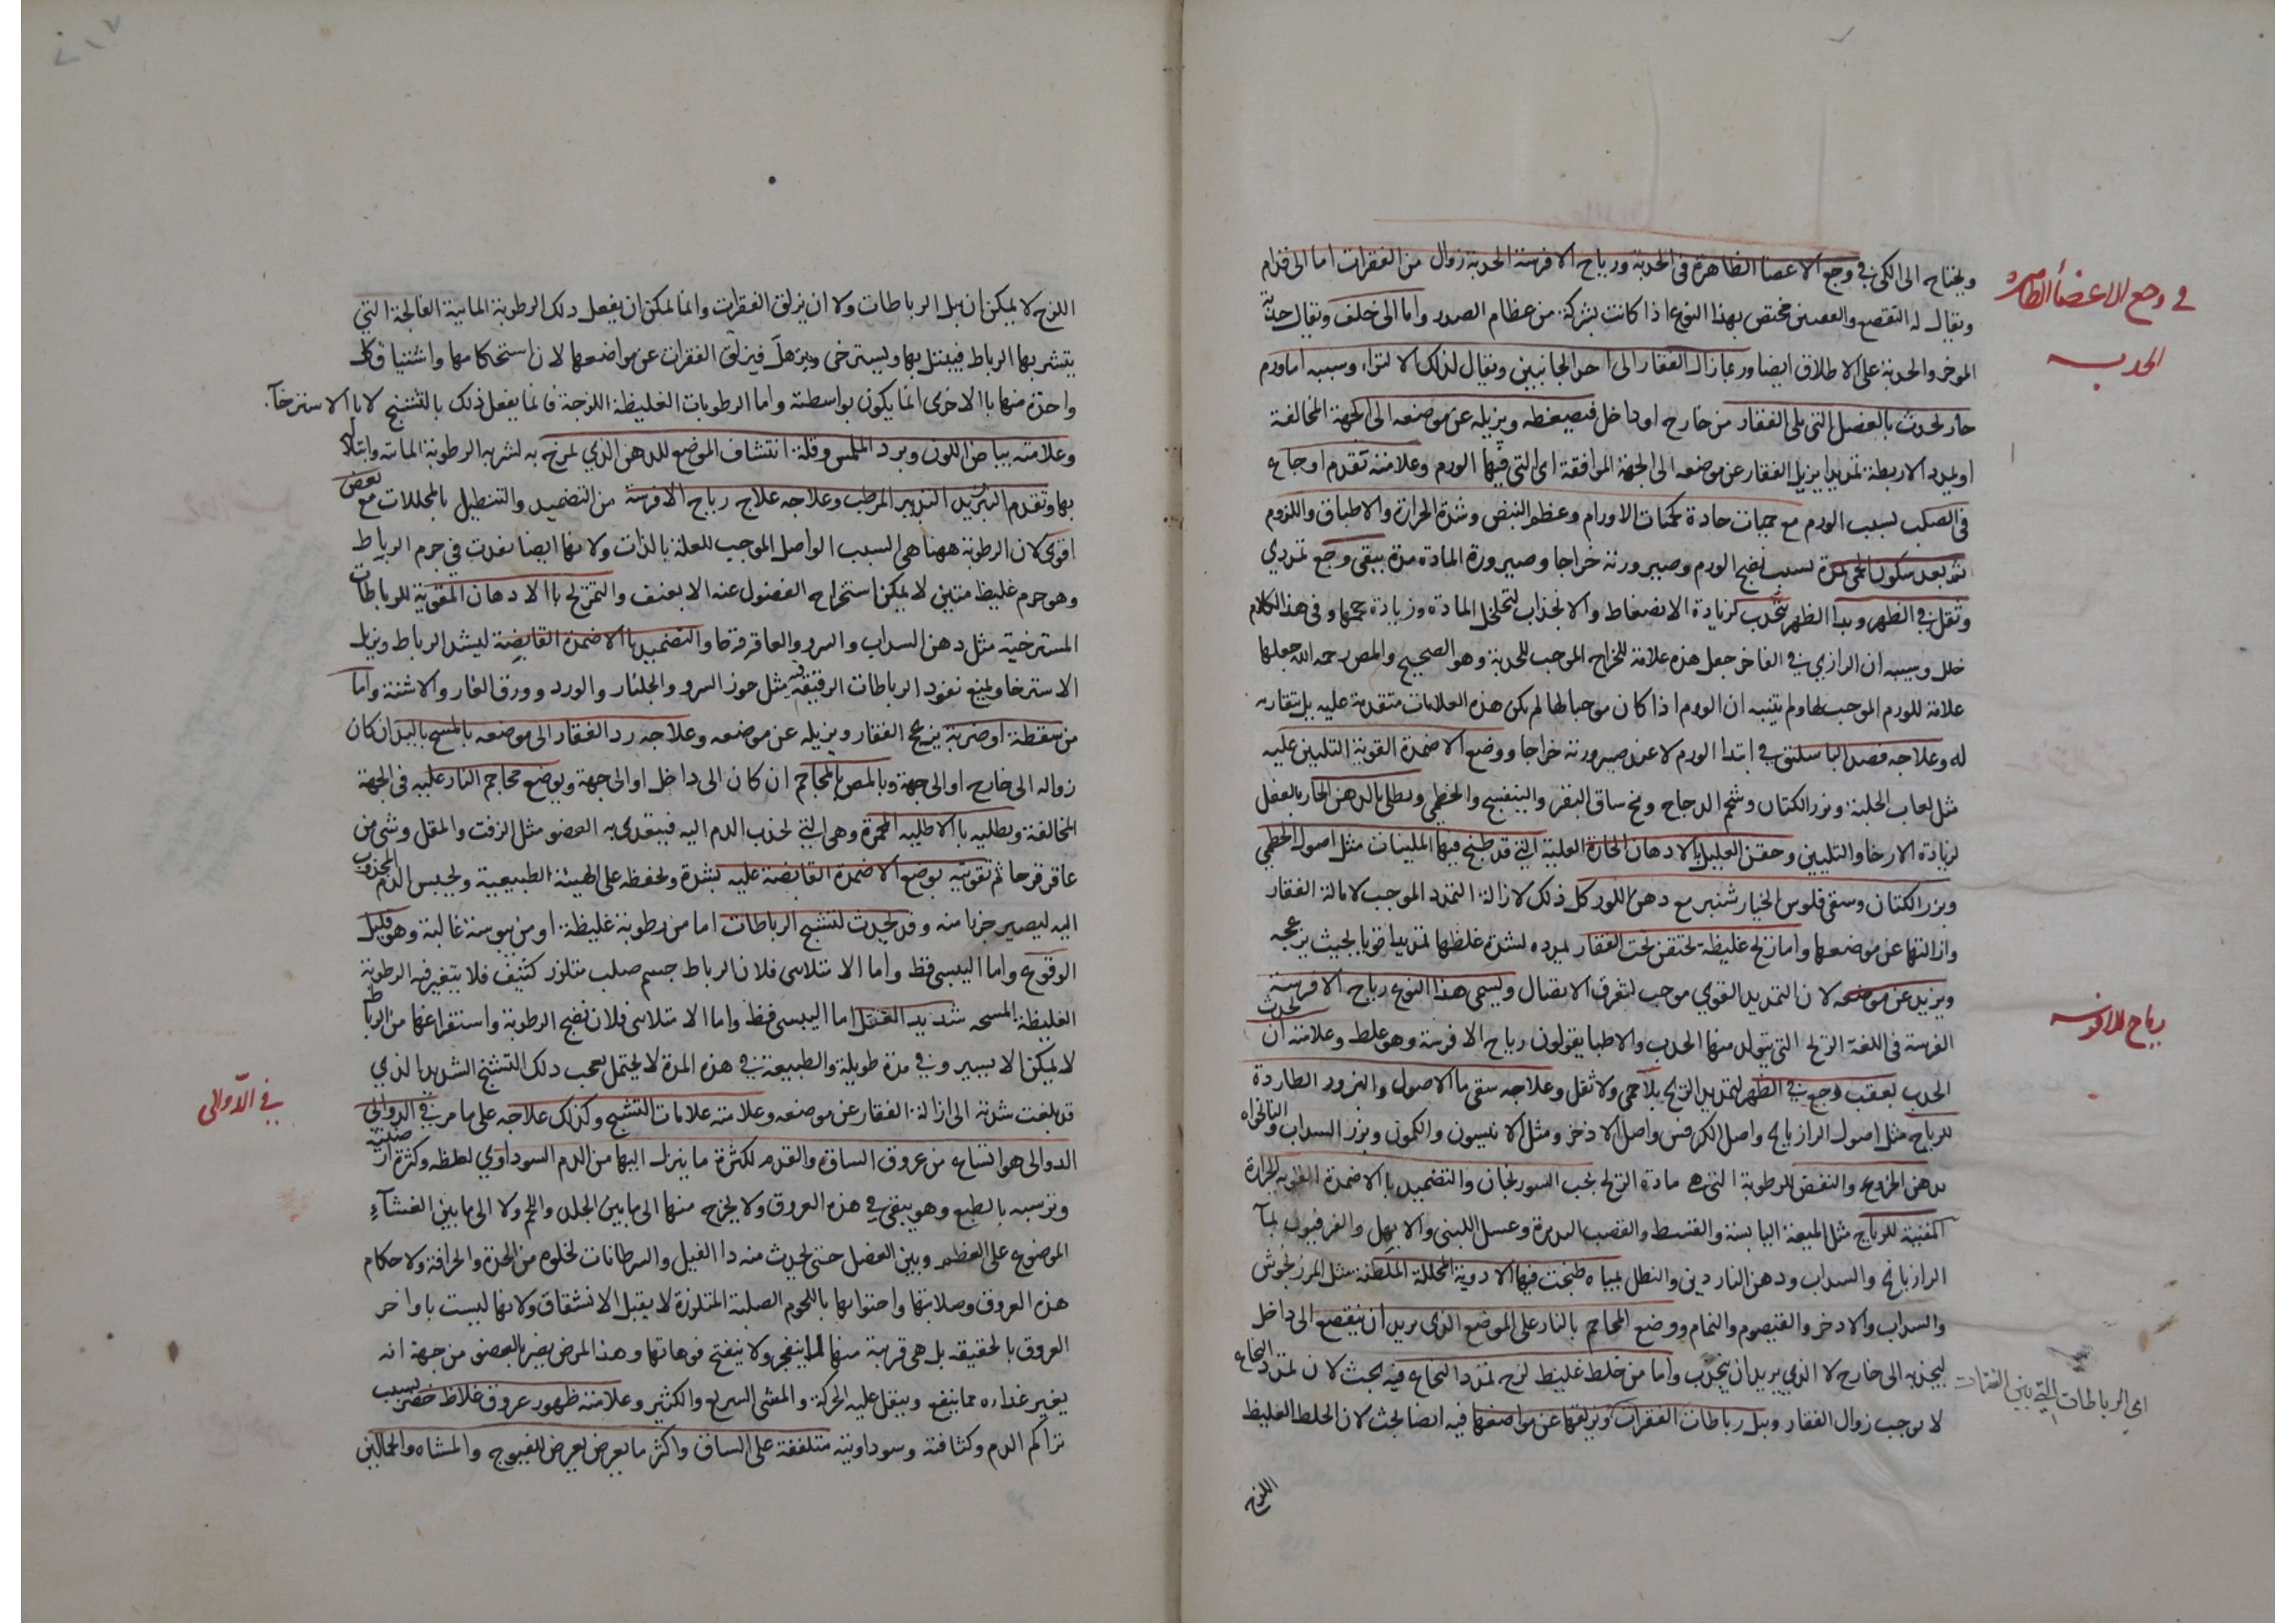 في وجع الاعضاء الظاهره
الحدب
ويحتاج الى الكى في وجع الاعضا الظاهرة فى الحدبة ورياح الافرسة الحدبة زوال من الفقرات اما الى قدام
ويقال له التقصع والقعس مختص بهذا النوع اذا كانت بشركة من عظام الصدر واما الى خلف ويقال حدبة
الموخر والحدبة على الاطلاق ايضا وربما زال الفقار الى احد الجانبين ويقال لذلك الالتواء وسببه اما ورم
حار يحدث بالعضل التى تلى الفقار من خارج او داخل فيضغطه ويزيله عن موضعه الى الجهة المخالفة
او يمدد الاربطة تمديدا يزيل الفقار عن موضعه الى الجهة الموافقة اى التى فيها الورم وعلامته تقدم اوجاع
فى الصلب لسبب الورم مع حميات حادة كحميات الاورام وعظم النبض وشدة الحرارة والاطباق واللزوم
ثم بعد سكون الحمى لمدة لسبب نضج الورم وصيرورته خراجا وصيرورة المادة مدة يبقى وجع تمددي
وثقل في الظهر وبدا الظهر يتحدب لزيادة الانضغاط والانجذاب لتخلخل المادة وزيادة حجمها وفى هذا الكلام
خلل وسببه ان الرازي في الفاخر جعل هذه علامة للخراج الموجب للحدبة وهو الصحيح والمص رحمه الله جعلها
علامة للورم الموجب لها ولم يتنبه ان الورم اذا كان موجبا لها لم يكن هذه العلامات متقدمة عليه بل متقاربه
له وعلاجه فصد الباسليق في ابتدا الورم لا عند صيرورته خراجا ووضع الاضمدة القوية التليين عليه
مثل لعاب الحلبة وبزر الكتان وشحم الدجاج ومخ ساق البقر والبنفسج والخطمي ويطلى بالدهن الحار بالفعل
لزيادة الارخا والتليين وحقن العليل بالادهان الحارة العلية التي قد طبخ فيها الملينات مثل اصول الخطمي
وبزر الكتان وسقى فلوس الخيار شنبر مع دهن اللوز كل ذلك لازالة التمدد الموجب لامالة الفقار
وازالتها عن موضعها واما ريح غليظة تحتقن تحت الفقار يمدده لشدة غلظها تمديدا قويا بحيث يزعجه
ويزيد عن موضعه لان التمديد القوي موجب لتفرق الاتصال ويسمى هذا النوع رياح الافرسة
رياح الافرسه
الفرسة فى اللغة الريح التى يتولد منها الحدب والاطبا يقولون رياح الافرسة وهو غلط وعلامته ان يحدث
الحدب بعقب وجع في الظهر لتمديد الريح بلا حمى ولا ثقل وعلاجه سقى ما الاصول والبزور الطاردة
للرياح مثل اصول الرازيانج واصل الكرفس واصل الاذخر ومثل الانيسون والكمون وبزر السداب والنانخواه
بدهن الخروع والنفض للرطوبة التى هى مادة الريح بحب السورنجان والتضميد بالاضمدة القوية الحرارة
المفنية للرياح مثل الميعة اليابسة والقسط والقصب الذريرة وعسل اللبنى والابهل والفرفيون بمآ
الرازيانج والسداب ودهن الناردين والنطل بمياه طبخت فيها الادوية المحللة الملطفة مثل المرزنجوش
والسداب والاذخر والقيصوم والنمام ووضع المحاجم بالنار على الموضع الذى يريد ان ينقصع الى داخل
ليجذبه الى خارج لا الذي يريد ان يتحدب واما من خلط غليظ لزج تمدد النخاع فيه بحث لان تمدد النخاع
اي الرباطات التي بين الفقرات
لا يوجب زوال الفقار ويبل رباطات الفقرات ويزلقها عن مواضعها فيه ايضا بحث لان الخلط الغليظ
اللزج
اللزج لا يمكن ان يبل الرباطات ولا ان يزلق الفقرات وانما يمكن ان يفعل ذلك الرطوبة المائية الفالجة التي
يتشربها الرباط فيبتل بها ويسترخى ويترهل فيزلق الفقرات عن مواضعها لان استحكامها واشتباق كل
واحدة منها بالاخرى انما يكون بواسطته واما الرطوبات الغليظة اللزجة فانما يفعل ذلك بالتشنج لا بالاسترخآ.
وعلامته بياض اللون وبرد الملمس وقلة انتشاف الموضع للدهن الذي يمرخ به لتشربه الرطوبة المائية وابتلاله
بها وتقدم التبريد التدبير المرطب وعلاجه علاج رياح الافرسة من التضميد والتنطيل بالمحللات مع بعض
اقوى لان الرطوبة ههنا هى السبب الواصل الموجب للعلة بالذات ولانها ايضا نفذت في جرم الرباط
وهو جرم غليظ متين لا يمكن استخراج الفضول عنه الا بعنف والتمريخ بالادهان المقوية للرباطات
المسترخية مثل دهن السداب والسرو والعاقرقرحا والتضميد بالاضمدة القابضة ليشد الرباط ويزيل
الاسترخا ويمنع نفوذ الرباطات الرقيقة فيه مثل جوز السرو والجلنار والورد وورق الغار والاشنة واما
من سقطة او ضربة يزعج الفقار ويزيله عن موضعه وعلاجه رد الفقار الى موضعه بالمسح باليد ان كان
زواله الى خارج او الى جهة وبالمص بالمحاجم ان كان الى داخل او الى جهة ويوضع محاجم النار عليه فى الجهة
المخالفة ويطليه بالاطلية المحمرة وهى التي تجذب الدم اليه فيتغذى به العضو مثل الزفت والمقل وشى من
عاقرقرحا ثم تقويته بوضع الاضمدة القابضة عليه بشدة ويحفظه على الهيئة الطبيعية ويحبس الدم المجذوب
اليه ليصير جزءا منه وقد يحدث لتشنج الرباطات اما من رطوبة غليظة او من يبوسة غالبة وهو قليل
الوقوع واما اليبسى فقط واما الامتلاسى فلان الرباط جسم صلب متلزز كثيف فلا يتغير فيه الرطوبة
الغليظة المسحه شديد القتل اما اليبسى فقط واما الامتلاسى فلان نضج الرطوبة واستفراغها من الرباط
لا يمكن الا بيسير وفي مدة طويلة والطبيعة في هذه المدة لا يحتمل تعب ذلك التشنج الشديد الذي
قد بلغت شدته الى ازالة الفقار عن موضعه وعلامته علامات التشنج وكذلك علاجه على ما مر في الدوالي
في الدوالى
الدوالى هو اتساع من عروق الساق والقدم لكثرة ما ينزل اليها من الدم السوداوي لغلظه وكثرة ارضيته
وترسبه بالطبع وهو يبقى في هذه العروق ولا يخرج منها الى ما بين الجلد واللحم ولا الى ما بين الغشآء
الموضوع على العظم وبين العضل حتى يحدث منه دا الفيل والسرطانات لخلوه من الحدة والحرافة ولاحكام
هذه العروق وصلابتها واحتوائها باللحوم الصلبة المتلززة لا يقبل الانشقاق ولانها ليست باواخر
العروق بالحقيقة بل هى قريبة منها لما ينفجر ولا ينفتح فوهاتها وهذا المرض يضر بالعضو من جهة انه
يغير غذاءه مما ينفع ويثقل عليه الحركة والمشى السريع والكثير وعلامته ظهور عروق غلاظ خضر بسبب
تراكم الدم وكثافته وسوداويته متلففة على الساق واكثر ما يعرض يعرض للفيوج والمشاه والحمالين